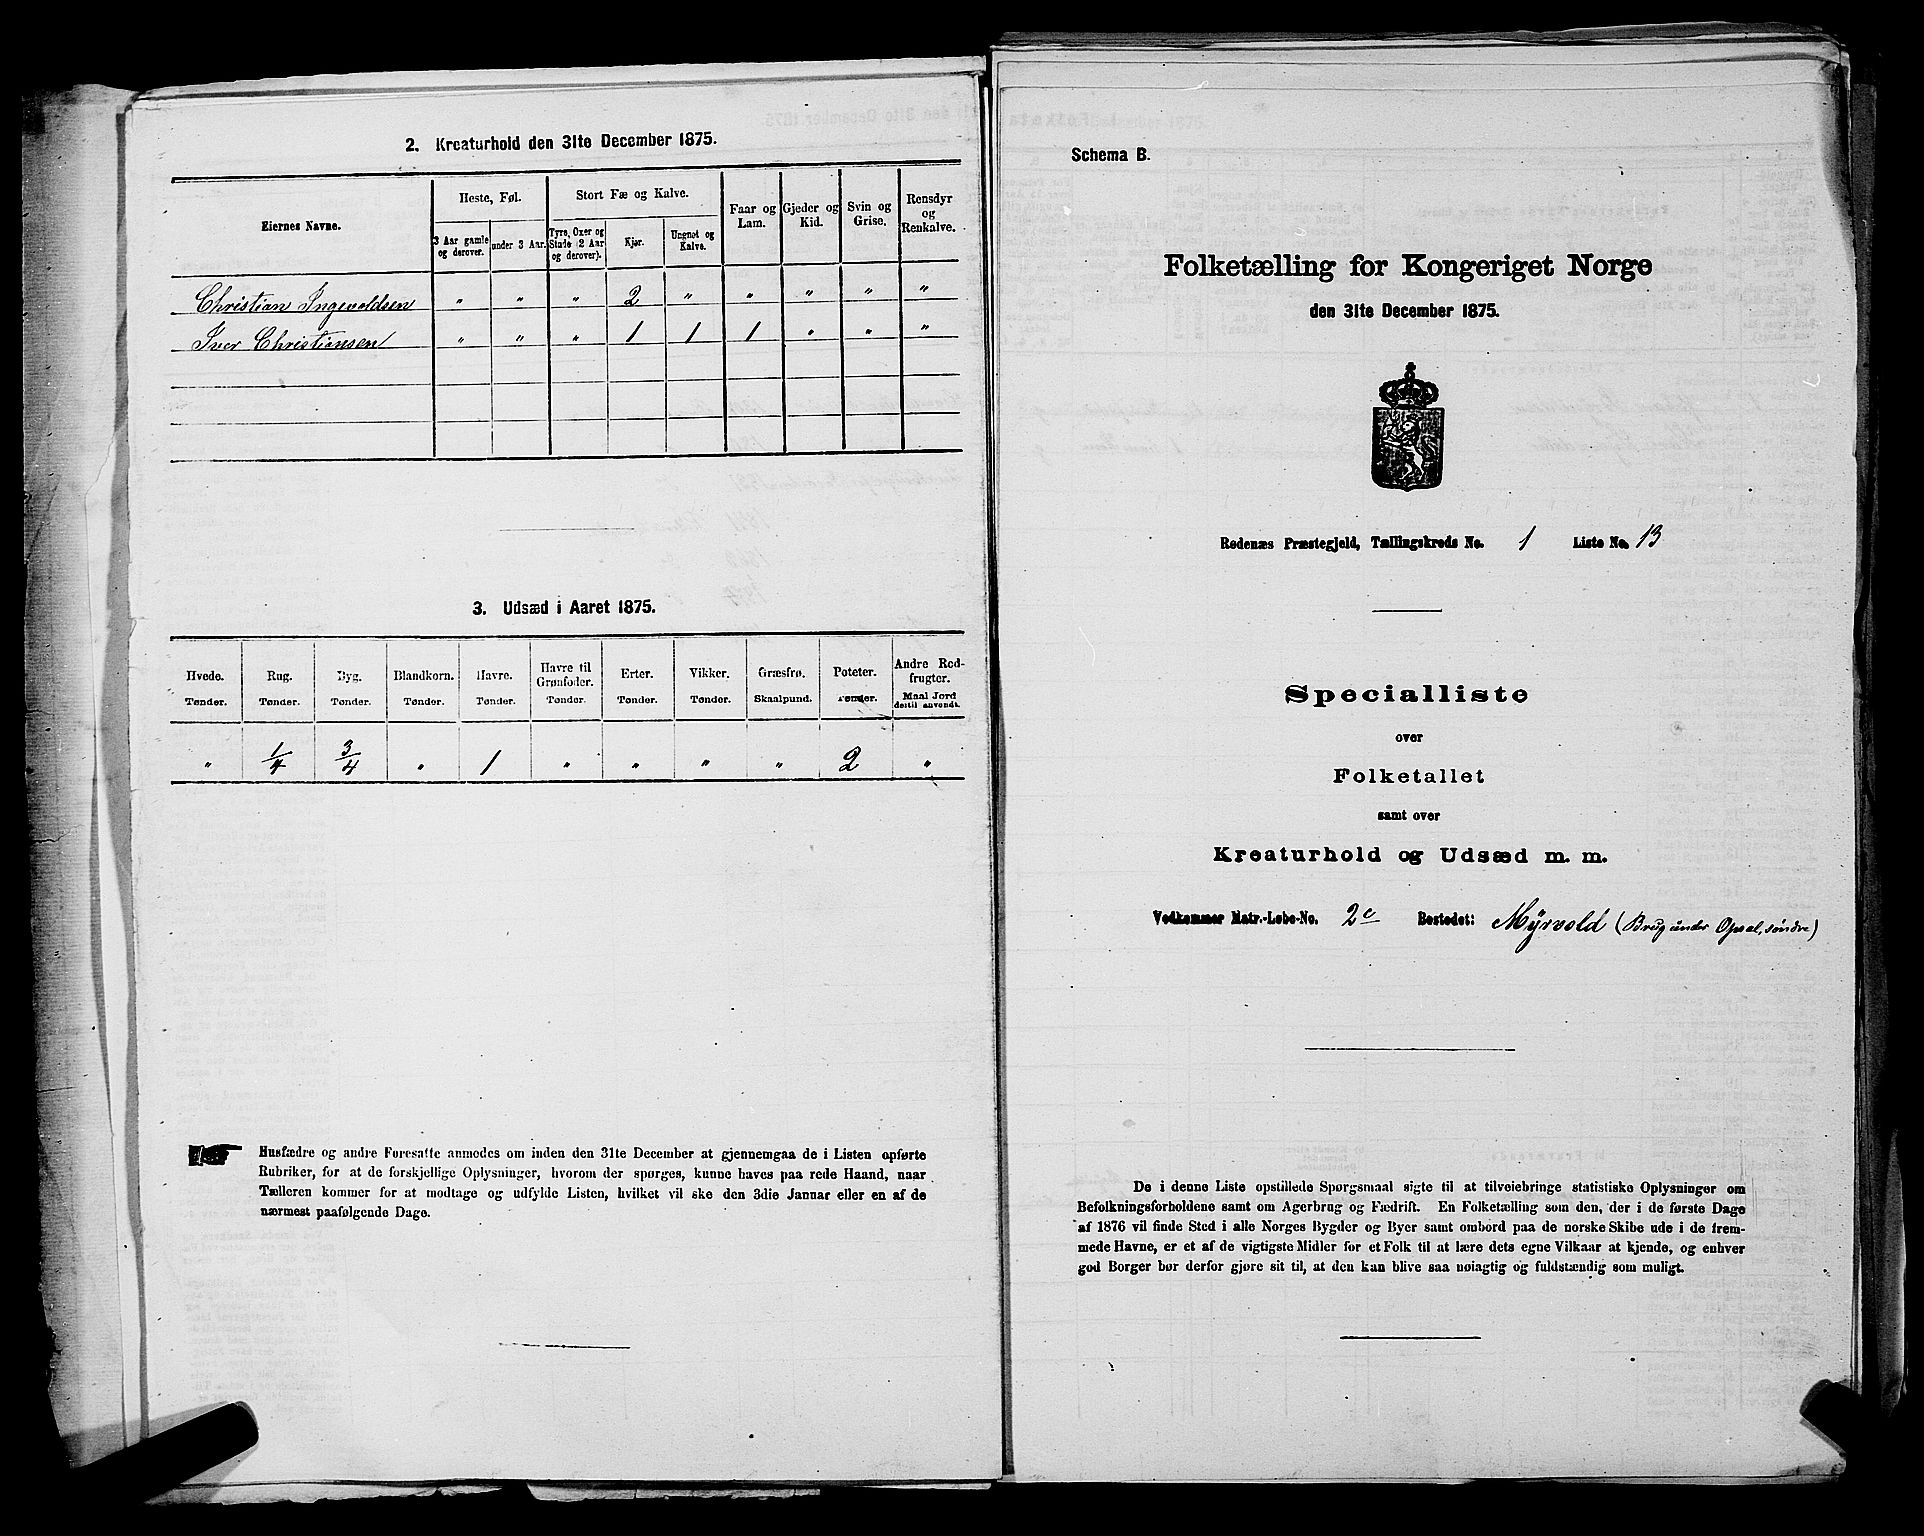 2. Kreaturhold den 31te December 1875.
Eiernes Navne.
Heste, Føl.
Stort Fæ og Kalve.
Faar og Lam.
Gjeder og Kid.
Svin og Grise.
Rensdyr og Renkalve.
3 Aar gamle og derover.
under 3 Aar.
Tyre, Oxer og Stude (2 Aar og derover).
Kjør.
Ungnøt og Kalve.
Christian Ingevoldsen " " " 2 " " " " "
Iver Christiansen " " " 1 1 1 " " "
3. Udsæd i Aaret 1875.
Hvede. Rug. Byg. Blandkorn. Havre. Havre til Grønfoder. Erter. Vikker. Græsfrø. Poteter. Andre Rodfrugter.
Tønder. Tønder. Tønder. Tønder. Tønder. Tønder. Tønder. Tønder. Skaalpund. Tønder. Maal Jord dertil anvendt.
" 1/4 3/4 " 1 " " " " 2 "
Husfædre og andre Foresatte anmodes om inden den 31te December at gjennemgaa de i Listen opførte
Rubriker, for at de forskjellige Oplysninger, hvorom der spørges, kunne haves paa rede Haand, naar
Tælleren kommer for at modtage og udfylde Listen, hvilket vil ske den 3die Januar eller en af de
nærmest paafølgende Dage.
Schema B.
Folketælling for Kongeriget Norge
den 31te December 1875.
Rødenæs Præstegjeld, Tællingskreds No. 1 Liste No. 13
Specialliste
over
Folketallet
samt over
Kreaturhold og Udsæd m. m.
Vedkommer Matr.-Løbe-No. 2c Bostedet: Myrvold (Brug under Opsal, søndre)
De i denne Liste opstillede Spørgsmaal sigte til at tilveiebringe statistiske Oplysninger om
Befolkningsforholdene samt om Agerbrug og Fædrift. En Folketælling som den, der i de første Dage
af 1876 vil finde Sted i alle Norges Bygder og Byer samt ombord paa de norske Skibe ude i de frem-
mede Havne, er et af de vigtigste Midler for et Folk til at lære dets egne Vilkaar at kjende, og enhver
god Borger bør derfor gjøre sit til, at den kan blive saa nøiagtig og fuldstændig som muligt.